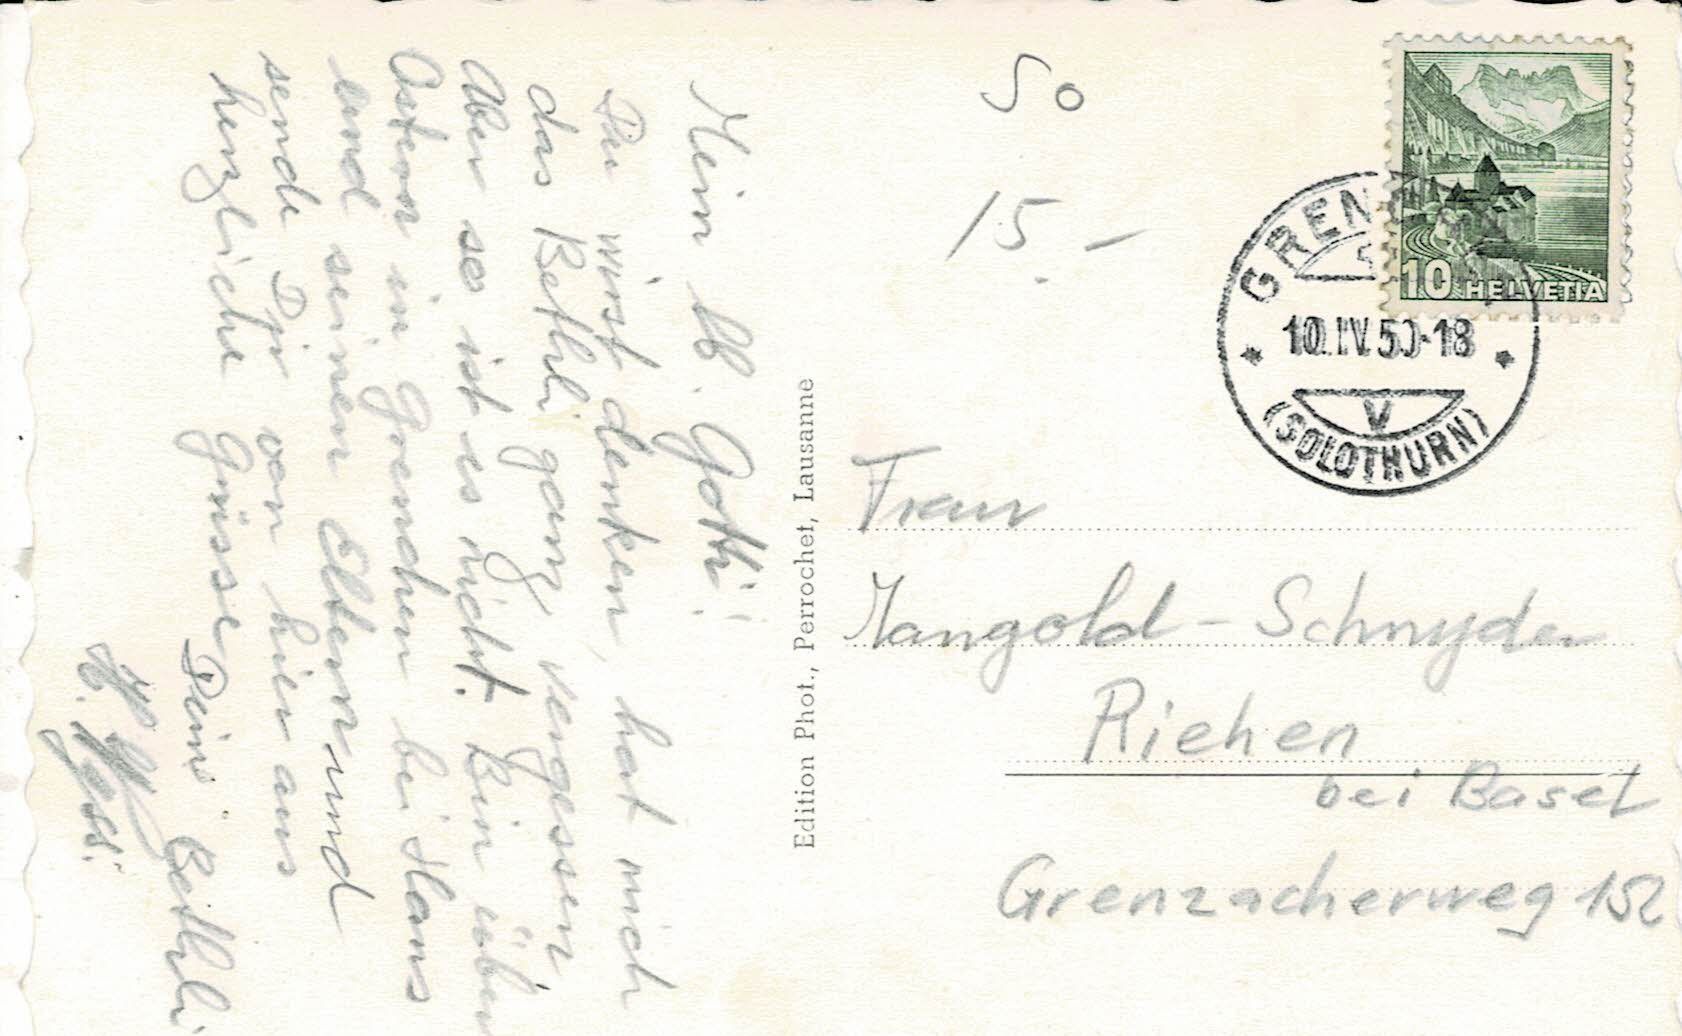 Mein lb. Gotti!
Du wirst denken, hat mich
das Bethli ganz vergessen
Aber so ist es nicht. Bin über
Ostern in Grenchen bei Hans
und seinen Eltern und
sende Dir von hier aus
herzliche Grüsse
Dein Bethli
H.
Edition Phot., Perrochet, Lausanne
50
15.-
10 HELVETIA
GREN
10.IV.50-18
V
(SOLOTHURN)
Frau
Mangold-Schnyder
Riehen
bei Basel
Grenzacherweg 152